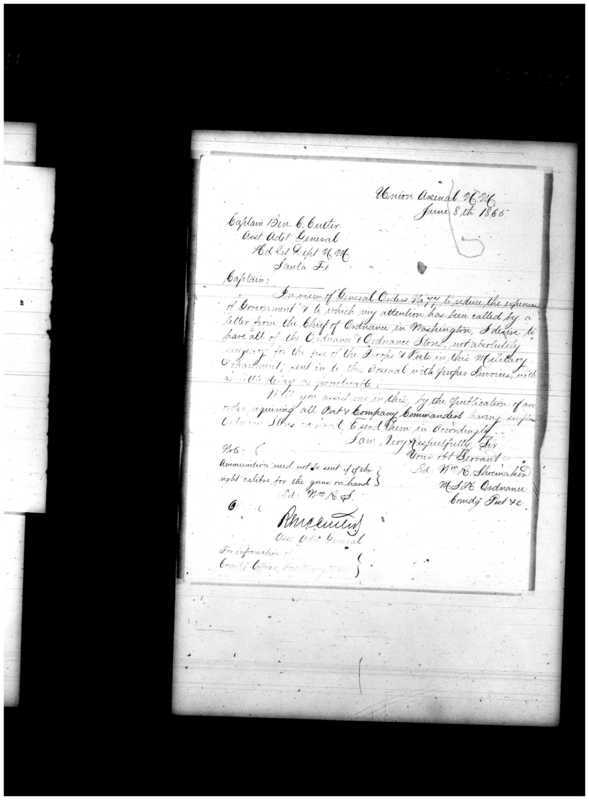 Union Arsenal N.M.
June 8th 1865
Captain Ben. C. Cutler
Asst Adjt General
Hd Qrs Dept N.M.
Santa Fe
Captain:
In view of General Orders No 77 to reduce the expenses
of Government & to which my attention has been called by a
letter from the Chief of Ordnance in Washington, I desire to
have all of the Ordnance & Ordnance Stores, not absolutely
necessary for the use of the Troops & Posts in this Military
Department, sent in to this Arsenal with proper Invoices, with
as little delay as practicable.
Will you assist me in this, by the publication of an
order, requiring all Post & Company Commanders having surplus
Ordnance Stores to send them in accordingly.
I am, Very respectfully, Sir
Your obt Servant
Sd. Wm R. Shoemaker
M.S.K. Ordnance
Comdg Post &c.
Note
Ammunition need not be sent if of the
right calibre for the guns on hand
Sd. Wm R. S.
Official
Asst Adjt General
For information of
Comdg Officer